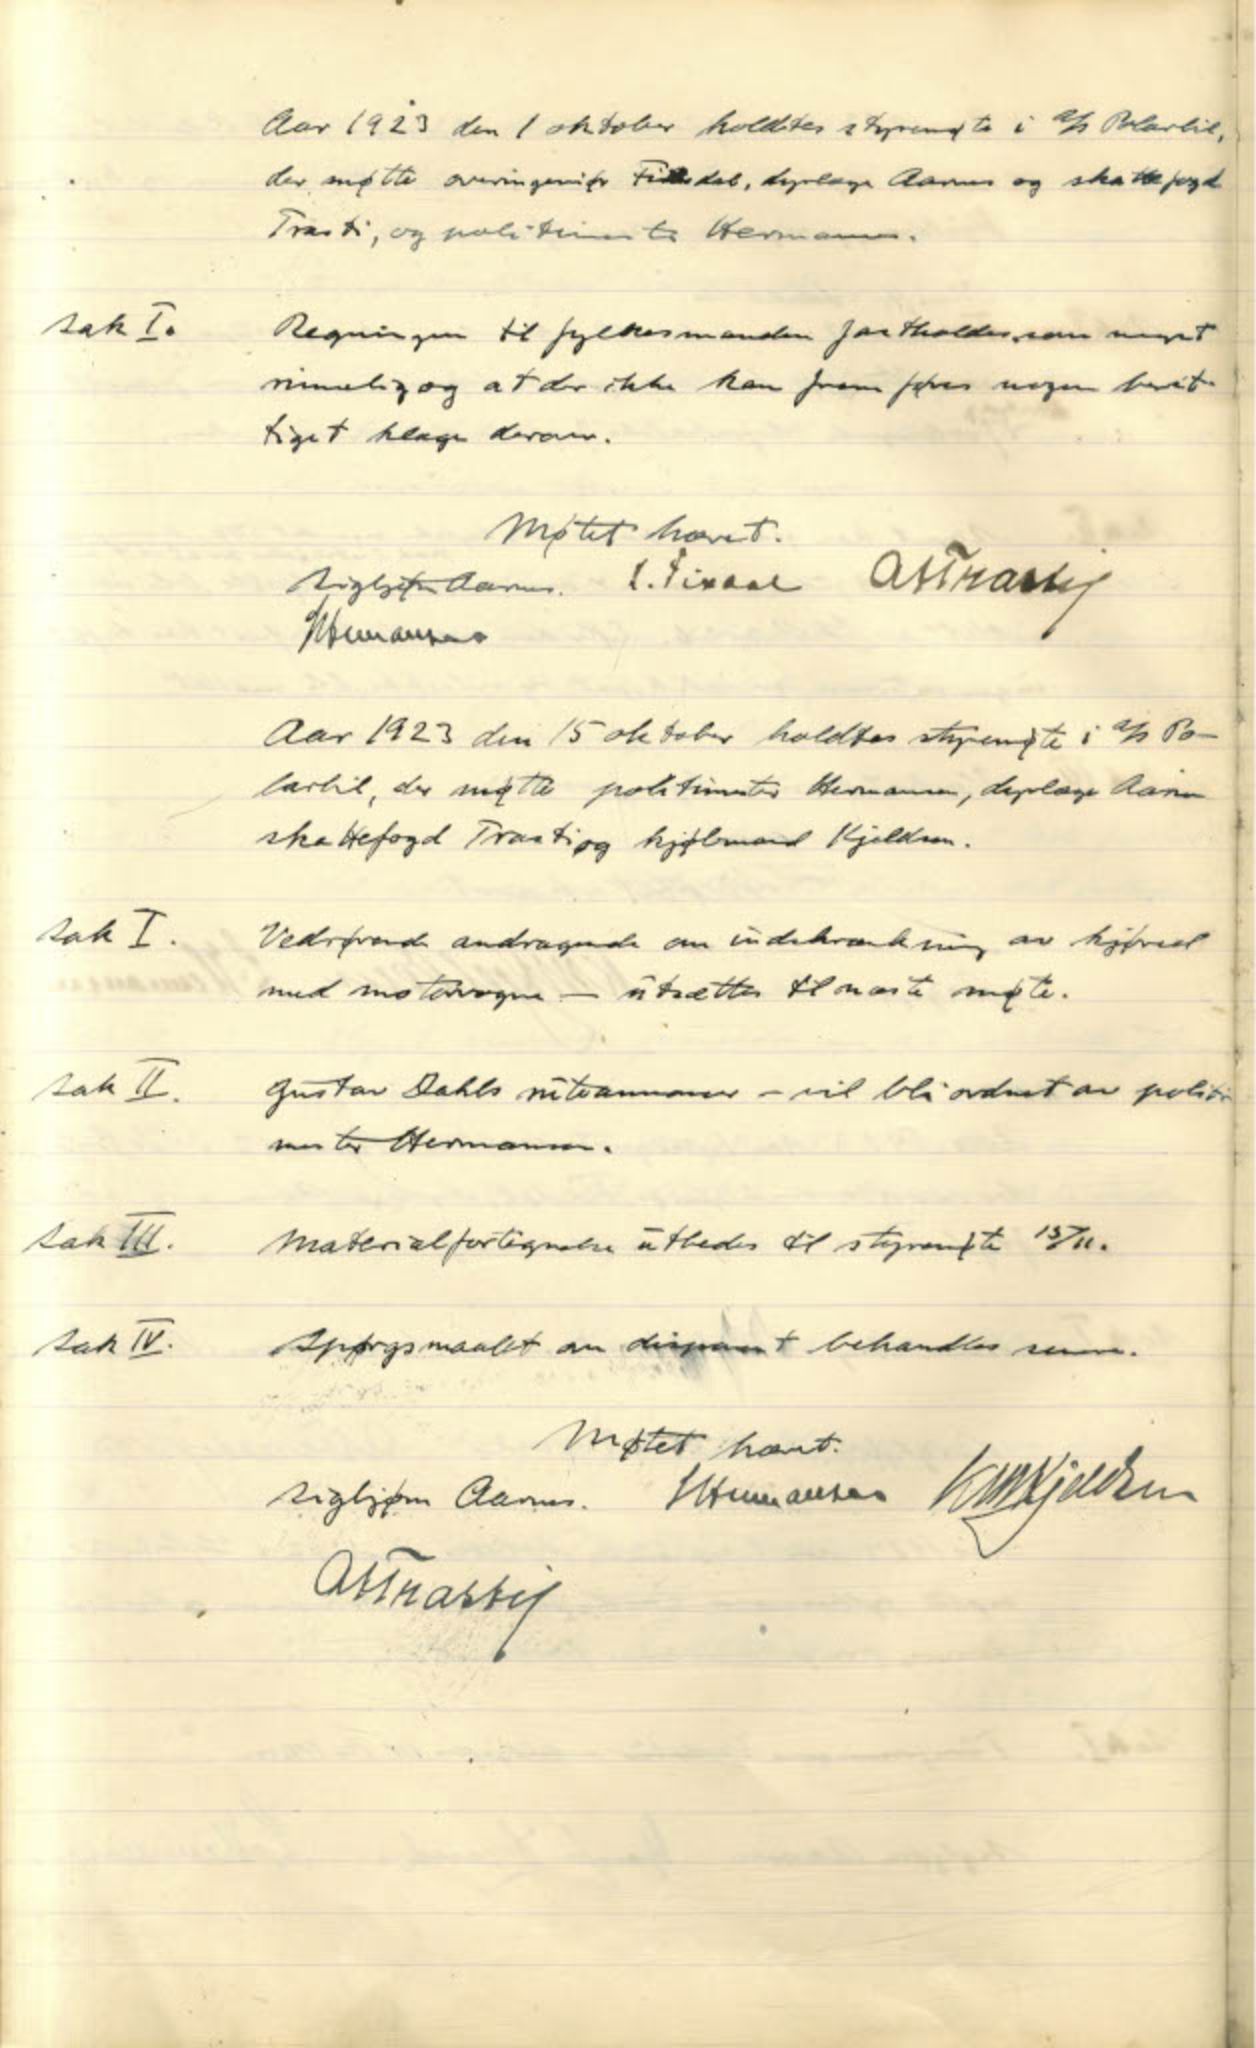 Aar 1923 den 1 oktober holdtes styremøte i A/S Polarbil,
der møtte overingeniør dyrlæge Aarnes og skattefogd
Trasti, og politimester Hermansen.
Sak I. Regningen til fylkesmanden fastholdes som meget
rimelig og at der ikke kan fremføres nogen beret-
tiget klage derover.
Møtet hævet.
Sigbjørn Aarnes. A Trasti
Hermansen
Aar 1923 den 15 oktober holdtes styremøte i A/S Po-
larbil, der møtte politimester Hermansen, dyrlæge Aarnes
skattefogd Trasti og kjøbmand Kjeldsen.
Sak I. Vedrørende andragende om indskrænkning av kjørsel
med motorvogne — utsættes til næste møte.
Sak II. Gustav Dahls ruteannonser – vil bli ordnet av politi
mester Hermansen.
Sak III. Materialfortegnelse utbedes til styremøte 15/11.
Sak IV. Spørgsmaalet om behandles senere.
Møtet hævet.
Sigbjørn Aarnes. Hermansen Kjeldsen
A Trasti